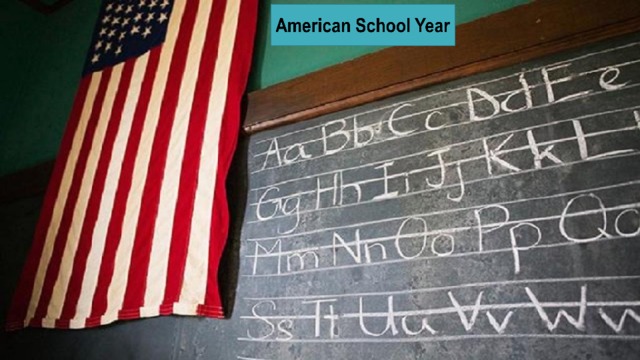 American School Year
Aa Bb Cc Dd Ee
Gg Hh Ii Jj Kk L
Mm Nn Oo Pp Q
Ss Tt Uu Vv Ww